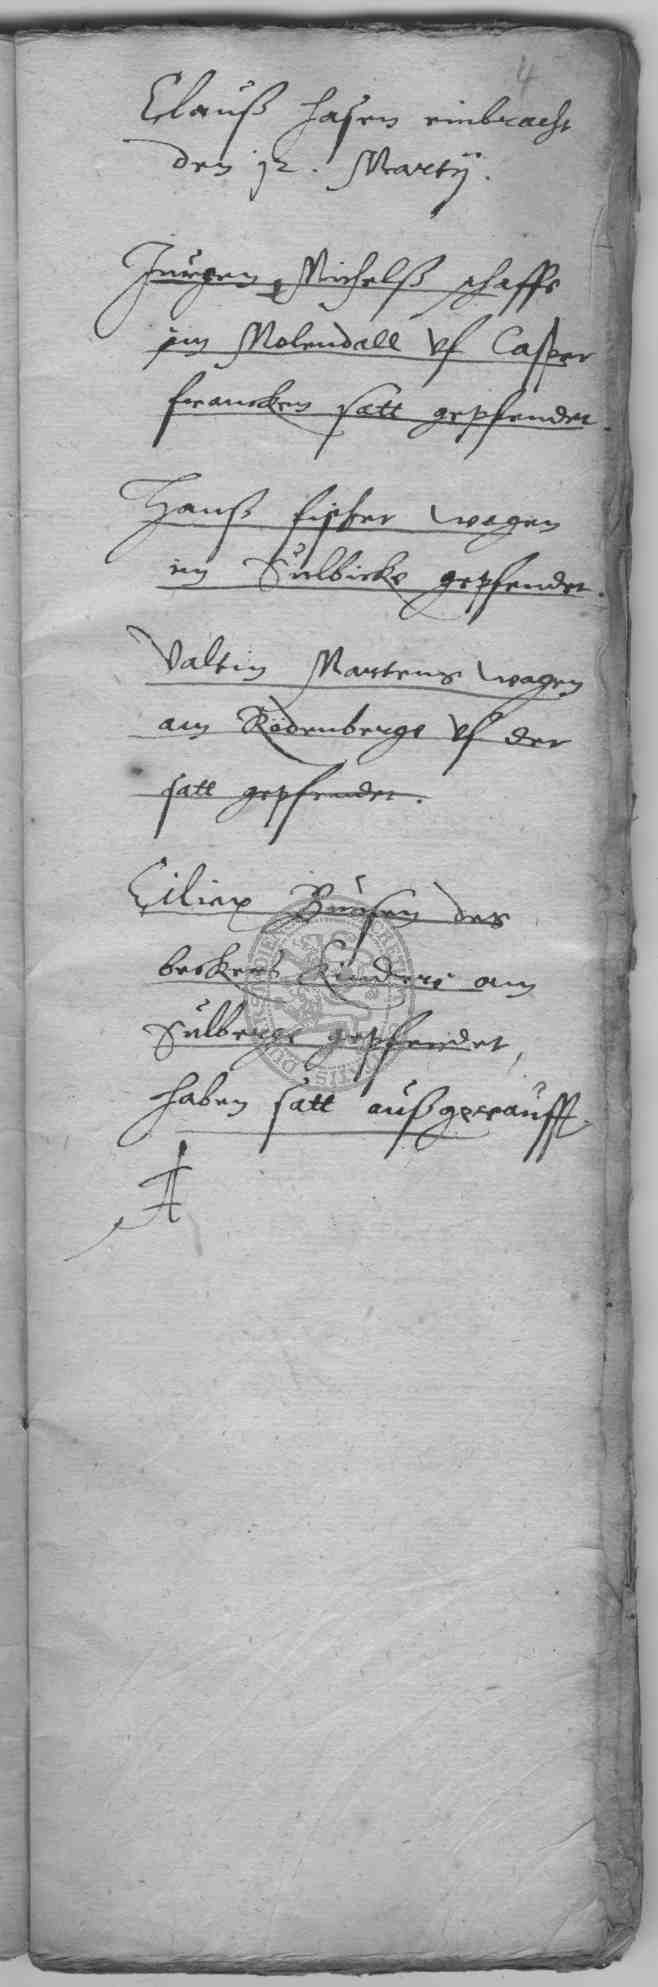 4
Clauß Hasen einbracht
den 12. Martij.
Jurgen Michelß schaffe
im Molendall vf Casper
francken satt gepfendet.
Hanß fischer wagen
im Sulbicke gepfendet.
Valtin Martens wagen
am Rodenberge vf der
satt gepfendet.
Ciliax des
beckers Kindere am
Sulberge gepfendet,
haben satt außgeraufft